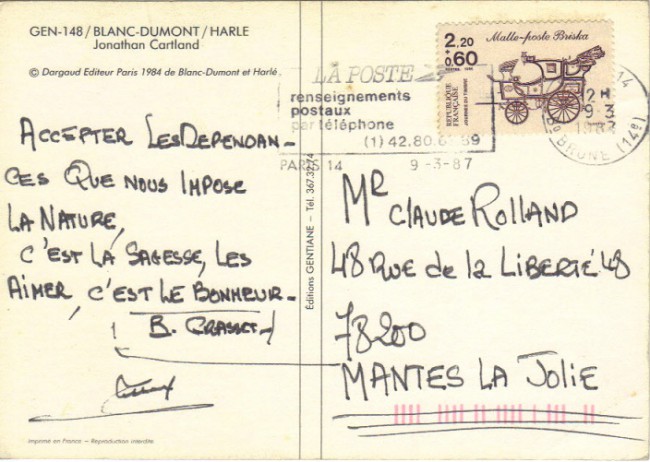 GEN-148/BLANC-DUMONT/HARLE
Jonathan Cartland
© Dargaud Editeur Paris 1984 de Blanc-Dumont et Harlé
ACCEPTER LES DEPENDAN-
CES QUE NOUS IMPOSE
LA NATURE,
C'EST LA SAGESSE, LES
AIMER, C'EST LE BONHEUR-
B. GRASSET
Imprimé en France – Reproduction interdite
Éditions GENTIANE – Tél. 367.32.74
2,20
+0,60
Malle-poste Briska
POSTES 1986
REPUBLIQUE FRANÇAISE
JOURNÉE DU TIMBRE
LA POSTE
renseignements
postaux
par téléphone
(1) 42.80.67.89
PARIS 14 9-3-87
14
2 H
9-3
BD BRUNE (14e)
MR CLAUDE ROLLAND
48 RUE de la LIBERTÉ 48
78200
MANTES LA JOLIE